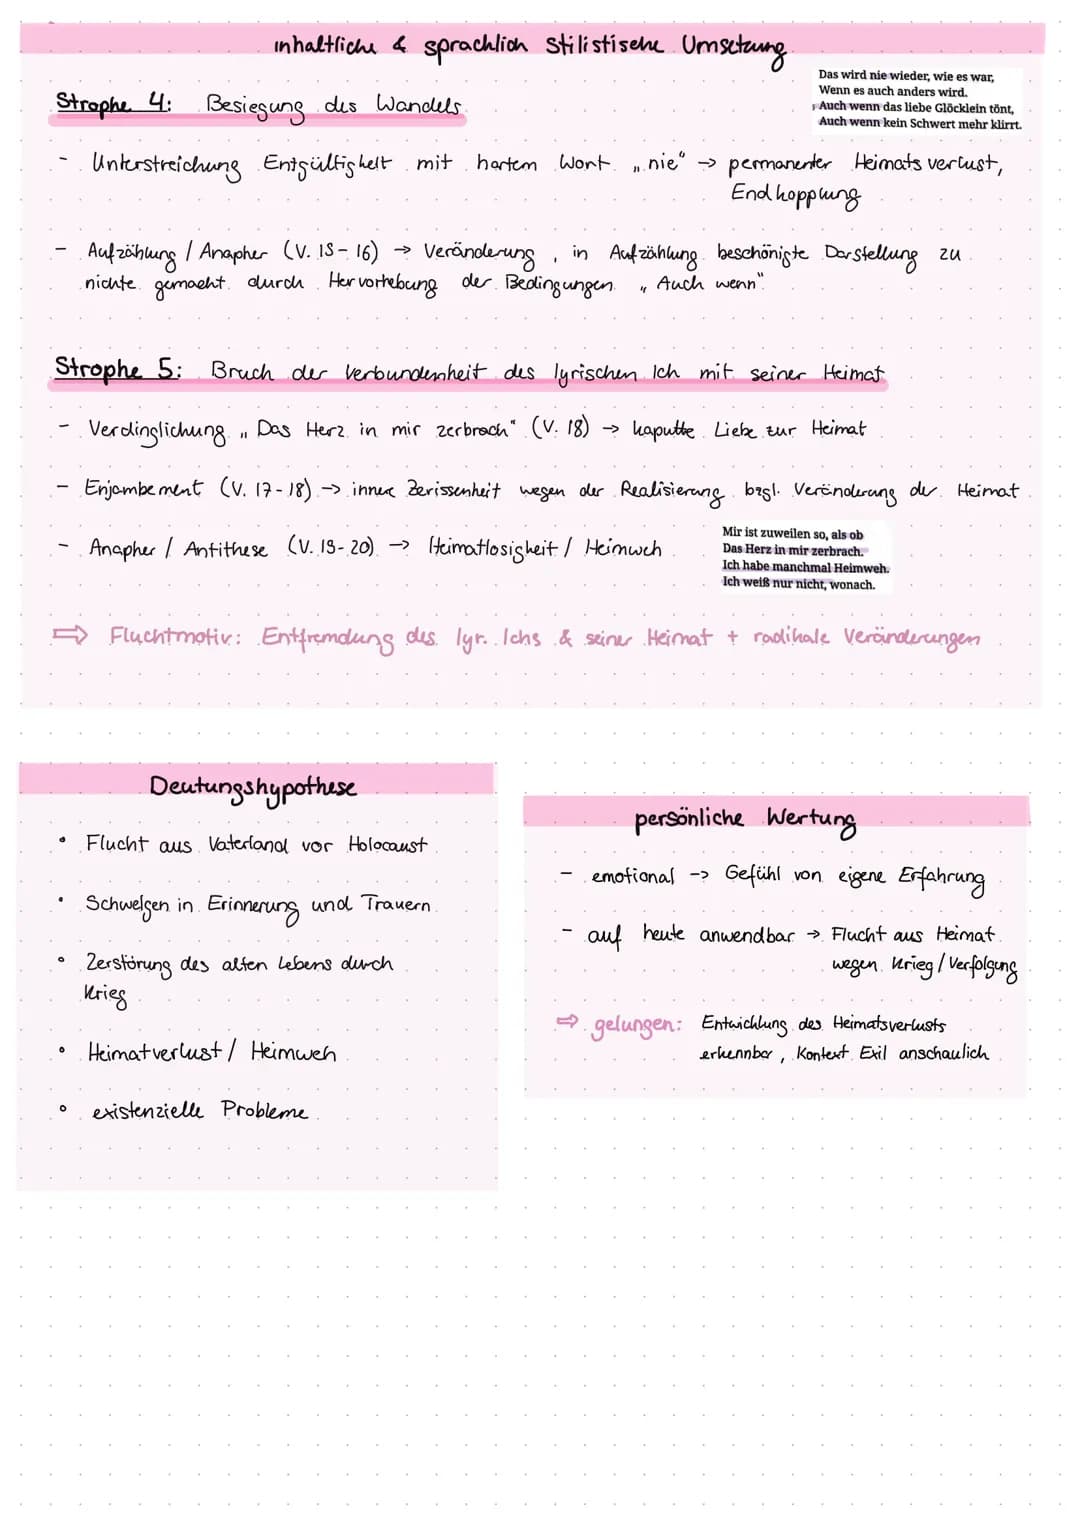 inhaltliche & sprachlich stilistische Umsetzung
Das wird nie wieder, wie es war,
Wenn es auch anders wird.
Auch wenn das liebe Glöcklein tönt,
Auch wenn kein Schwert mehr klirrt.
Strophe 4: Besiegung des Wandels
- Unterstreichung Entgültigkeit mit hartem Wort „nie" → permanenter Heimatsverlust,
Endkopplung
- Aufzählung / Anapher (V. 15-16) → Veränderung, in Aufzählung beschönigte Darstellung zu
nichte gemacht durch Hervorhebung der Bedingungen „Auch wenn"
Strophe 5: Bruch der Verbundenheit des lyrischen Ich mit seiner Heimat
- Verdinglichung „Das Herz in mir zerbrach" (V. 18) → kaputte Liebe zur Heimat
- Enjambement (V. 17-18) → innere Zerissenheit wegen der Realisierung bzgl. Veränderung der Heimat
- Anapher / Antithese (V. 19-20) → Heimatlosigkeit / Heimweh
Mir ist zuweilen so, als ob
Das Herz in mir zerbrach.
Ich habe manchmal Heimweh.
Ich weiß nur nicht, wonach.
⇒ Fluchtmotiv: Entfremdung des lyr. Ichs & seiner Heimat + radikale Veränderungen
Deutungshypothese
• Flucht aus Vaterland vor Holocaust
• Schwelgen in Erinnerung und Trauern
• Zerstörung des alten Lebens durch
Krieg
• Heimatverlust / Heimweh
• existenzielle Probleme
persönliche Wertung
- emotional -> Gefühl von eigene Erfahrung
- auf heute anwendbar → Flucht aus Heimat
wegen Krieg / Verfolgung
⇒ gelungen: Entwicklung des Heimatsverlusts
erkennbar, Kontext Exil anschaulich